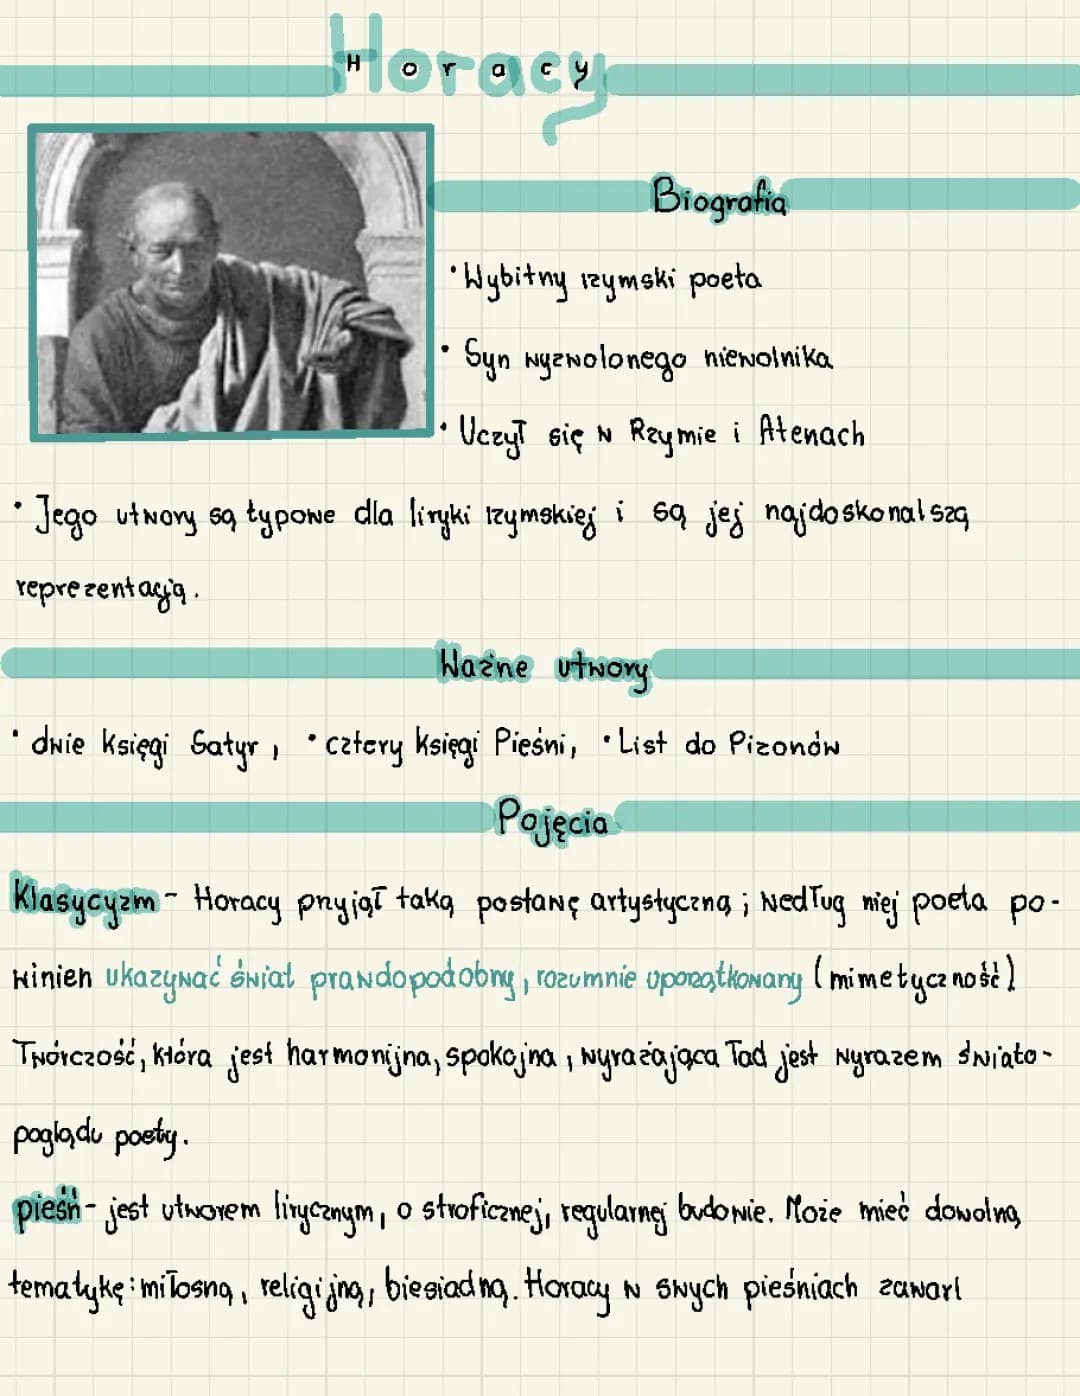 Horacy
Biografia
• Wybitny rzymski poeta
• Syn wyzwolonego niewolnika
• Uczył się w Rzymie i Atenach
• Jego utwory są typowe dla liryki rzymskiej i są jej najdoskonalszą
reprezentacją.
Ważne utwory
• dwie księgi Satyr, • cztery księgi Pieśni, • List do Pizonów
Pojęcia
Klasycyzm - Horacy przyjął taką postawę artystyczną; według niej poeta po-
winien ukazywać świat prawdopodobny, rozumnie uporządkowany (mimetyczność)
Twórczość, która jest harmonijna, spokojna, wyrażająca ład jest wyrazem świato-
poglądu poety.
pieśń - jest utworem lirycznym, o stroficznej, regularnej budowie. Może mieć dowolną
tematykę: miłosną, religijną, biesiadną. Horacy w swych pieśniach zawarł